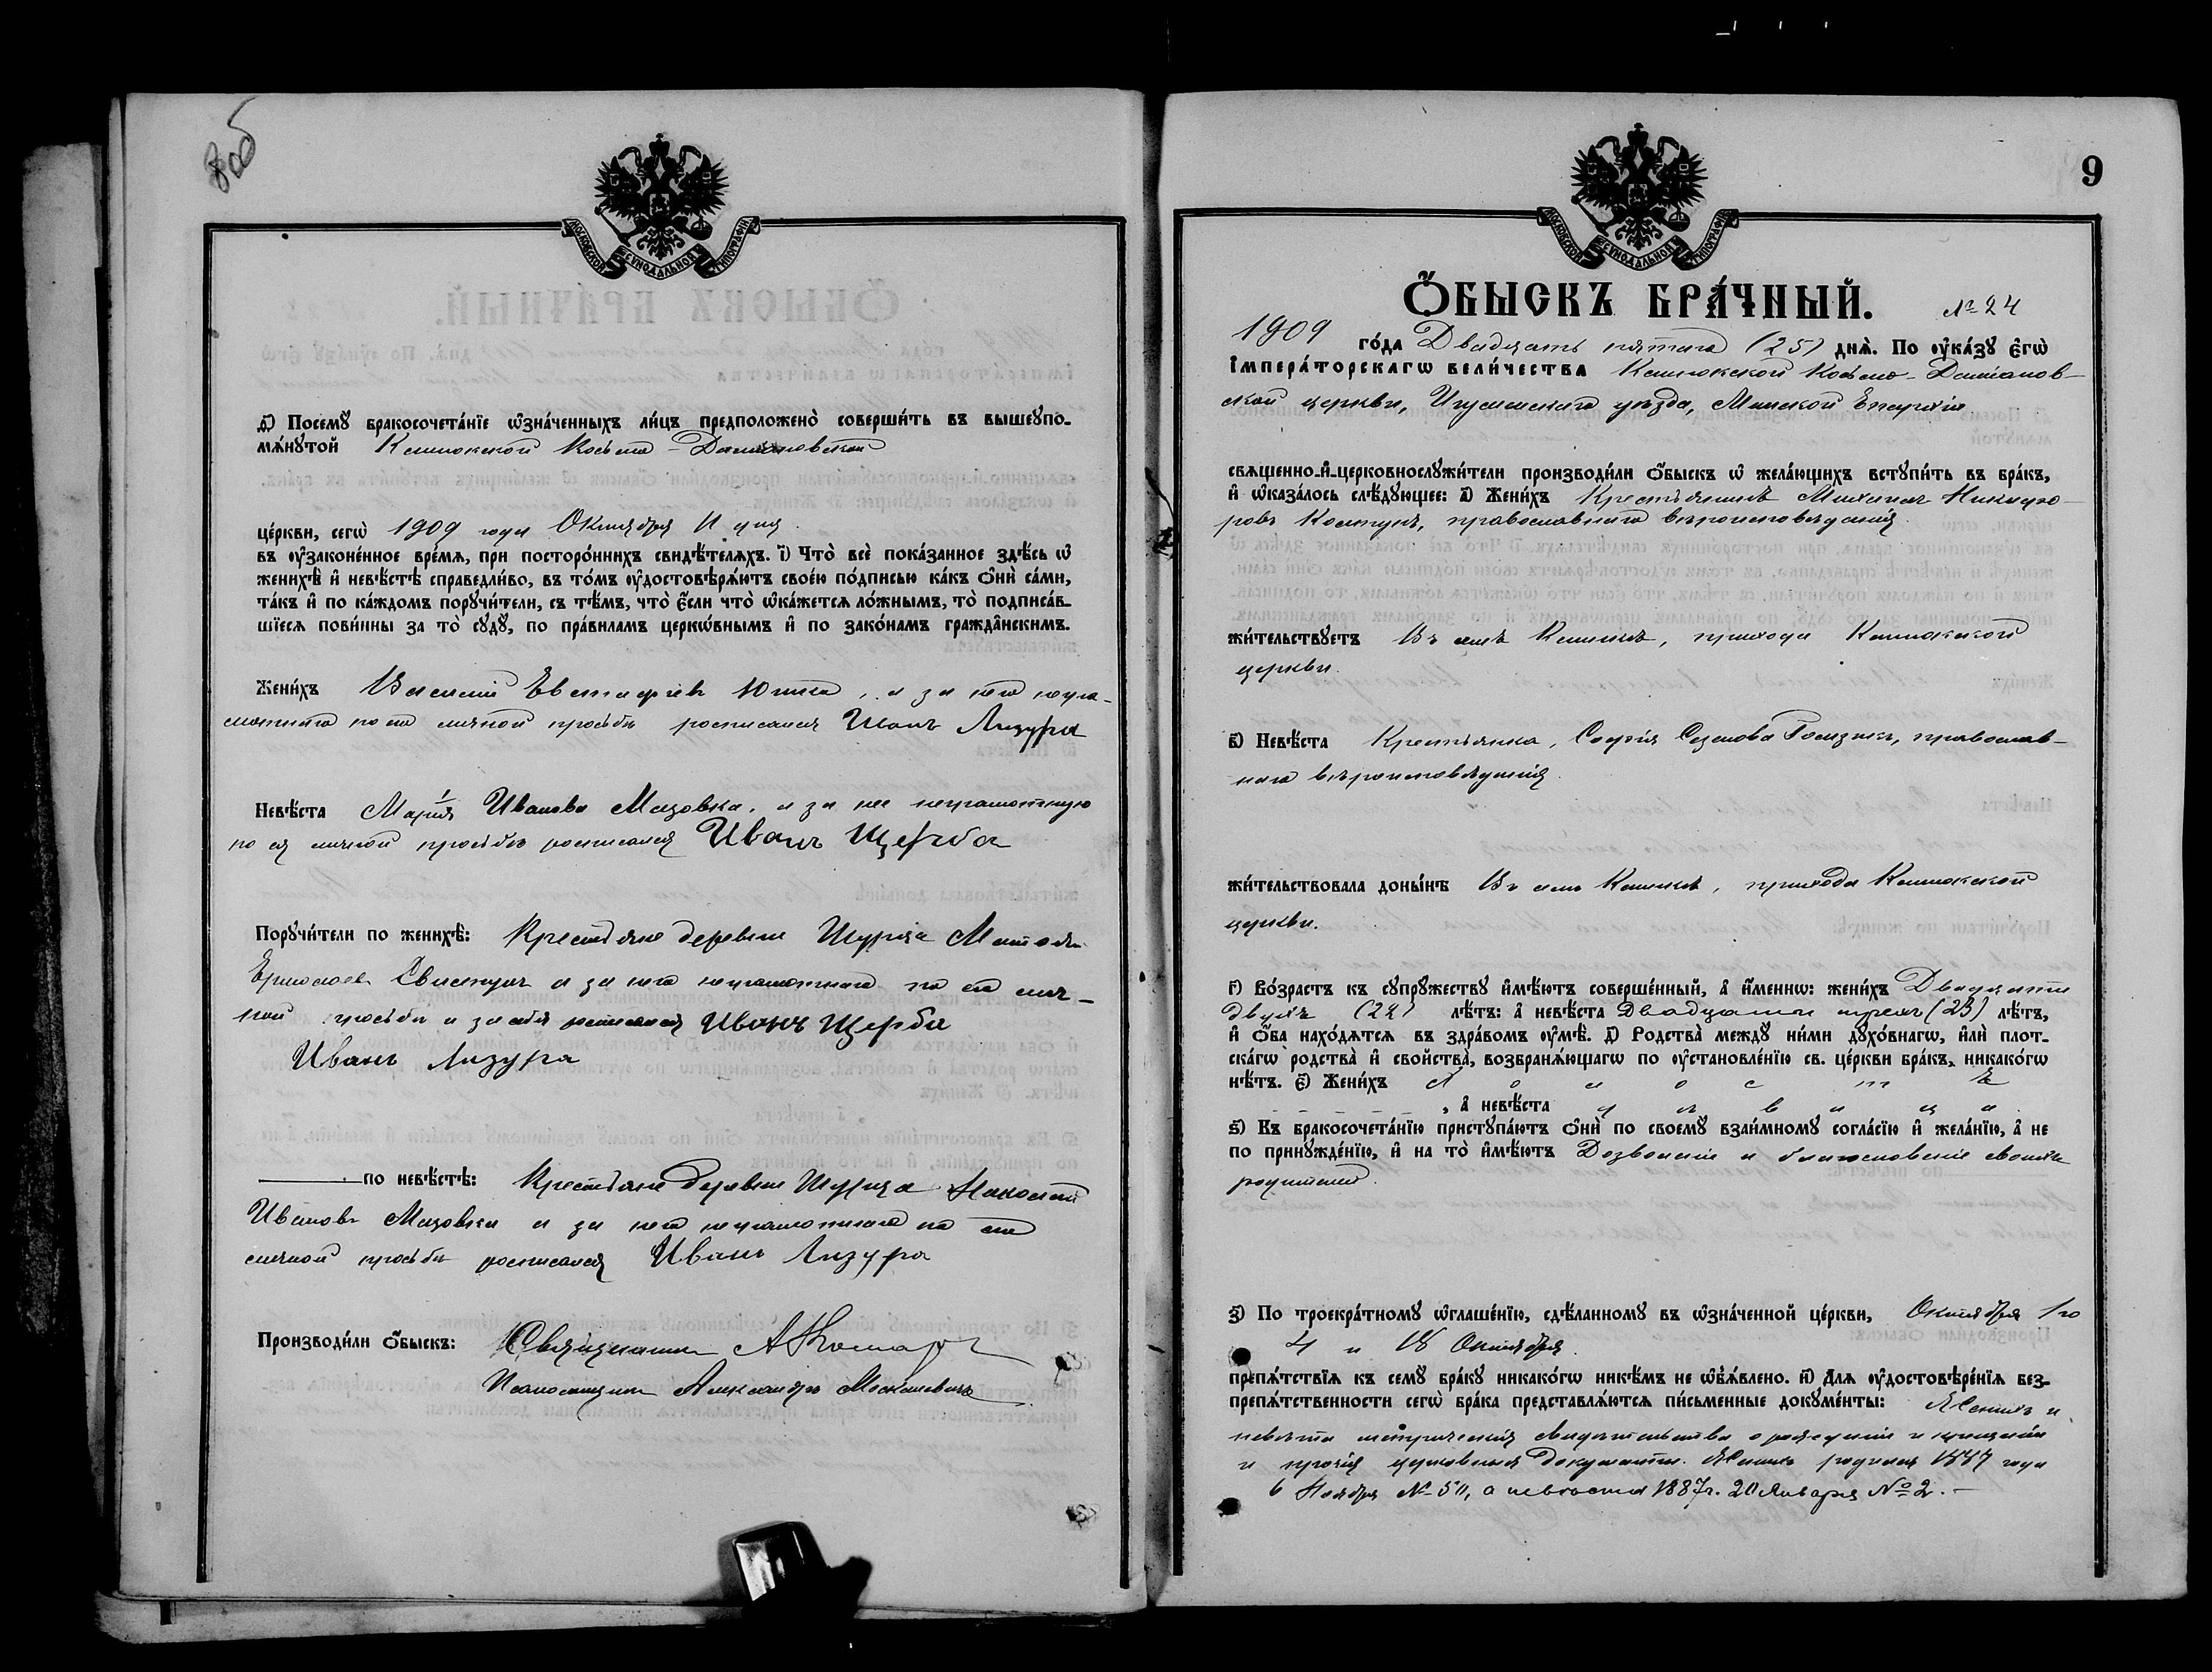 8об
МОСКОВСКОЙ СѴНОДАЛЬНОЙ ТИПОГРАФІИ
д҃) Посемꙋ бракосочета́нїе ѡ҆зна́ченныхъ ли́цъ предположено̀ соверши́ть въ вышеꙋпо-
мѧ́нꙋтой Косьмо-Даміановской
це́ркви, сегѡ̀ 1909 года Октября 11 дня.
въ ᲂу҆зако́ненное вре́мѧ, при посторо́ннихъ свидѣ́телѧхъ. і҃) Что̀ всѐ пока́занное здѣ́сь ѡ҆
женихѣ̀ и҆ невѣ́стѣ справедли́во, въ то́мъ ᲂу҆достовѣрѧ́ютъ свое́ю по́дписью ка́къ ѻ҆нѝ са́ми,
та́къ и҆ по ка́ждомъ порꙋчи́тели, съ тѣ́мъ, что̀ є҆́сли что̀ ѡ҆ка́жетсѧ ло́жнымъ, то̀ подписа́в-
шїесѧ пови́нны за то̀ сꙋдꙋ̀, по пра́виламъ церкѡ́внымъ и҆ по зако́намъ гражда̂нскимъ.
Жени́хъ Василій Евстафіевъ Юшко, а за него негра-
мотнаго по его личной просьбѣ росписался Иванъ Лизура
Невѣ́ста Марія Иванова Мазовка, а за нее неграмотную
по ея личной просьбѣ росписался Иванъ Щерба
Порꙋчи́тели по женихѣ̀: Крестьяне деревни
Свистунъ а за него неграмотнаго по его лич-
ной просьбѣ и за себя росписался Иванъ Щерба
Иванъ Лизура
по невѣ́стѣ: Крестьяне деревни
Ивановъ Мазовка а за него неграмотнаго по его
личной просьбѣ росписался Иванъ Лизура
Производи́ли ѻ҆́быскъ: Священникъ
Псаломщикъ Александръ
9
МОСКОВСКОЙ СѴНОДАЛЬНОЙ ТИПОГРАФІИ
Ѻ҆́БЫСКЪ БРА́ЧНЫЙ. № 24
1909 го́да Двадцать пятаго (25) днѧ̀. По ᲂу҆ка́зꙋ є҆гѡ̀
і҆мпера́торскагѡ вели́чества Косьмо-Даміанов-
ской церкви, Игуменскаго уѣзда, Минской Епархіи
свѧщенно-и҆-церковнослꙋжи́тели производи́ли ѻ҆́быскъ ѡ҆ жела́ющихъ встꙋпи́ть въ бра́къ,
и҆ ѡ҆каза́лось слѣ́дꙋющее: а҃) Жени́хъ Крестьянинъ Михаилъ Никифо-
ровъ Колтунъ, православнаго вѣроисповѣданія.
жи́тельствꙋетъ Въ селѣ прихода
церкви.
в҃) Невѣ́ста Крестьянка, Софія православ-
наго вѣроисповѣданія.
жи́тельствовала доны́нѣ Въ селѣ прихода
церкви.
г҃) Во́зрастъ къ сꙋпрꙋ́жествꙋ и҆мѣ́ютъ соверше́нный, а҆ и҆́меннѡ: жени́хъ Двадцати
двухъ (22) лѣ́тъ: а҆ невѣ́ста Двадцати трехъ (23) лѣ́тъ,
и҆ ѻ҆́ба нахо́дѧтсѧ въ здра́вомъ ᲂу҆мѣ̀. д҃) Родства̀ междꙋ̀ ни́ми дꙋхо́внагѡ, и҆лѝ плот-
ска́гѡ родства̀ и҆ свойства̀, возбранѧ́ющагѡ по ᲂу҆становле́нїю св. це́ркви бра́къ, никако́гѡ
нѣ́тъ. є҃) Жени́хъ холостъ
, а҆ невѣ́ста дѣвица.
ѕ҃) Къ бракосочета́нїю пристꙋпа́ютъ ѻ҆нѝ по своемꙋ̀ взаи́мномꙋ согла́сїю и҆ жела́нїю, а҆ не
по принꙋжде́нїю, и҆ на то̀ и҆мѣ́ютъ Дозволеніе и благословеніе своихъ
родителей.
з҃) По троекра́тномꙋ ѡ҆глаше́нїю, сдѣ́ланномꙋ въ ѡ҆зна́ченной це́ркви, Октября 1го
4 и 18 Октября.
препѧ́тствїѧ къ семꙋ̀ бра́кꙋ никако́гѡ никѣ́мъ не ѡ҆б̾ѧ́влено. и҃) Длѧ ᲂу҆достовѣре́нїѧ без-
препѧ́тственности сегѡ̀ бра́ка представлѧ́ютсѧ пи́сьменные докꙋме́нты: Женихъ и
невѣста метрическія свидѣтельства о рожденіи и крещеніи
и прочія церковныя документы. Женихъ родился 1887 года
6 Ноября № 50, а невѣста 1887г. 20 Января № 2.